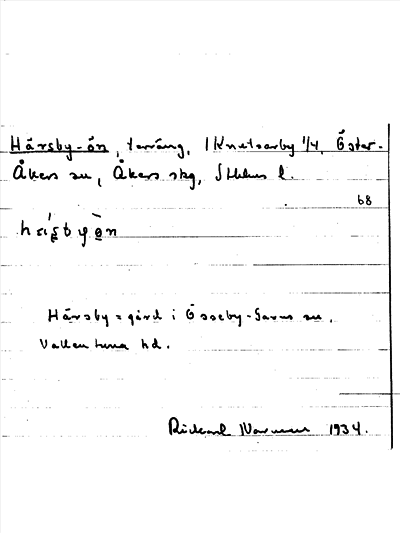 Härsby-ön, terräng, 1 Knutsarby 1/4, Öster-
Åkers sn, Åkers skg, Sthlms l.
68
Härsby = gård i Össeby-Garns sn,
Vallentuna hd.
Rickard 1934.